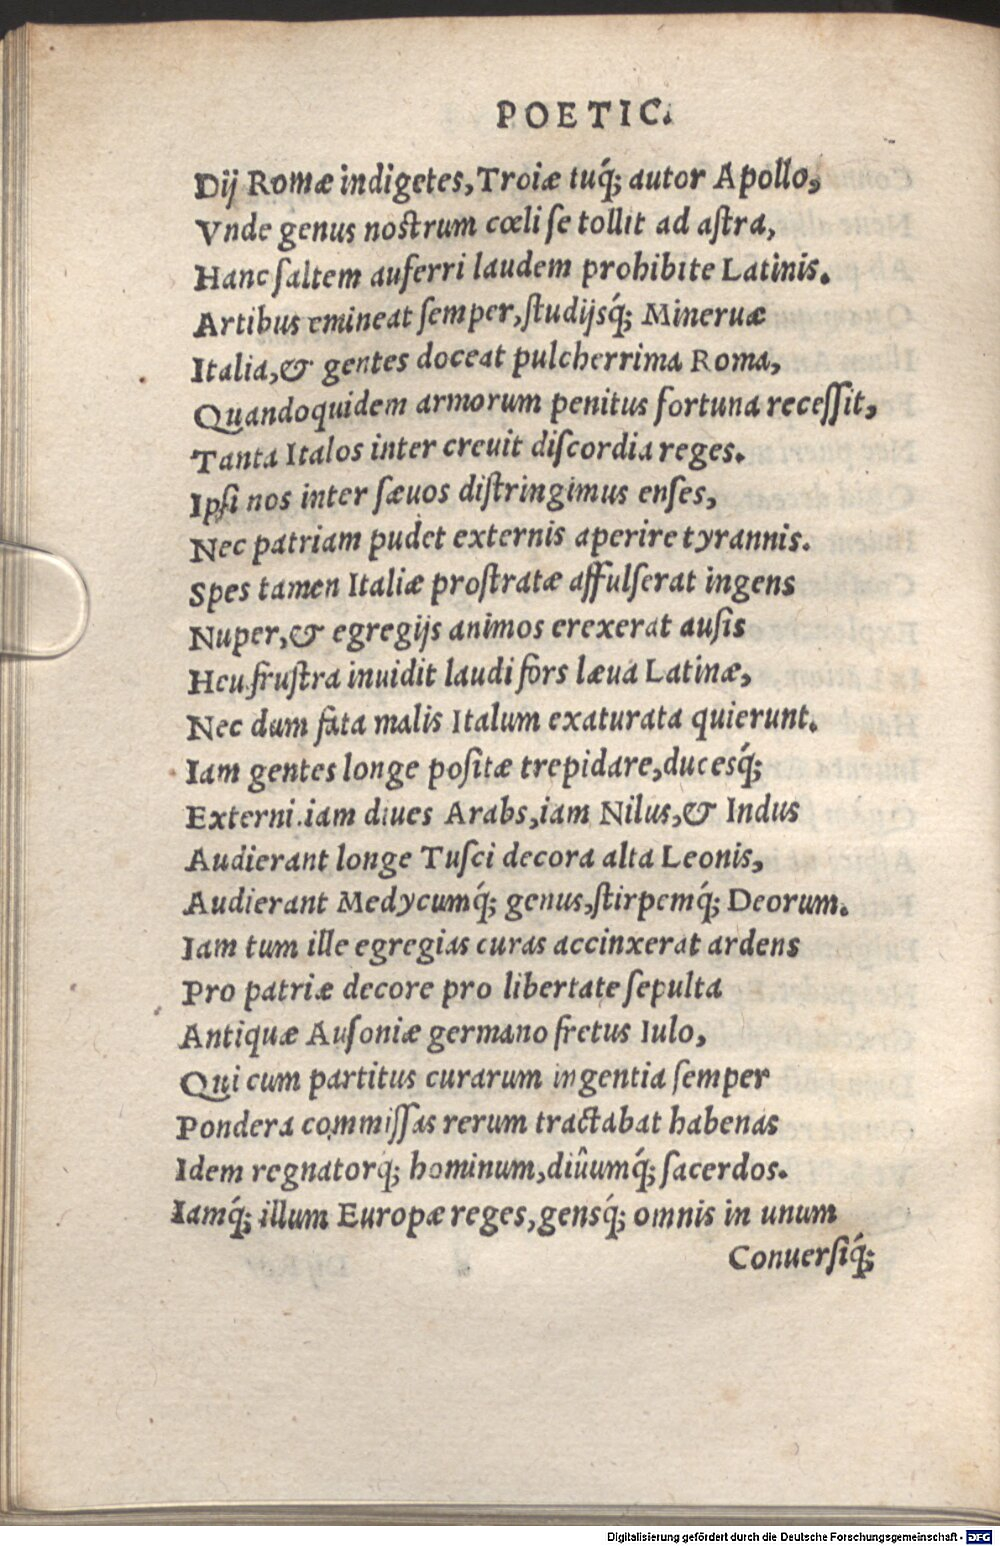 POETIC.
Dij Romæ indigetes, Troiæ tuq́; autor Apollo,
Vnde genus nostrum cœli se tollit ad aſtra,
Hanc ſaltem auferri laudem prohibite Latinis.
Artibus emineat ſemper, ſtudijsq́; Mineruæ
Italia, & gentes doceat pulcherrima Roma,
Quandoquidem armorum penitus fortuna receſſit,
Tanta Italos inter creuit diſcordia reges.
Ipſi nos inter ſæuos diſtringimus enſes,
Nec patriam pudet externis aperire tyrannis.
Spes tamen Italiæ proſtratæ affulſerat ingens
Nuper, & egregijs animos erexerat auſis
Heu fruſtra inuidit laudi fors læua Latinæ,
Nec dum fata malis Italum exaturata quierunt.
Iam gentes longe poſitæ trepidare, ducesq́;
Externi. iam diues Arabs, iam Nilus, & Indus
Audierant longe Tuſci decora alta Leonis,
Audierant Medycumq́; genus, ſtirpemq́; Deorum.
Iam tum ille egregias curas accinxerat ardens
Pro patriæ decore pro libertate ſepulta
Antiquæ Auſoniæ germano fretus Iulo,
Qui cum partitus curarum ingentia ſemper
Pondera commiſſas rerum tractabat habenas
Idem regnatorq́; hominum, diûumq́; ſacerdos.
Iamq́; illum Europæ reges, gensq́; omnis in unum
Conuerſiq́;
Digitalisierung gefördert durch die Deutsche Forschungsgemeinschaft - DFG